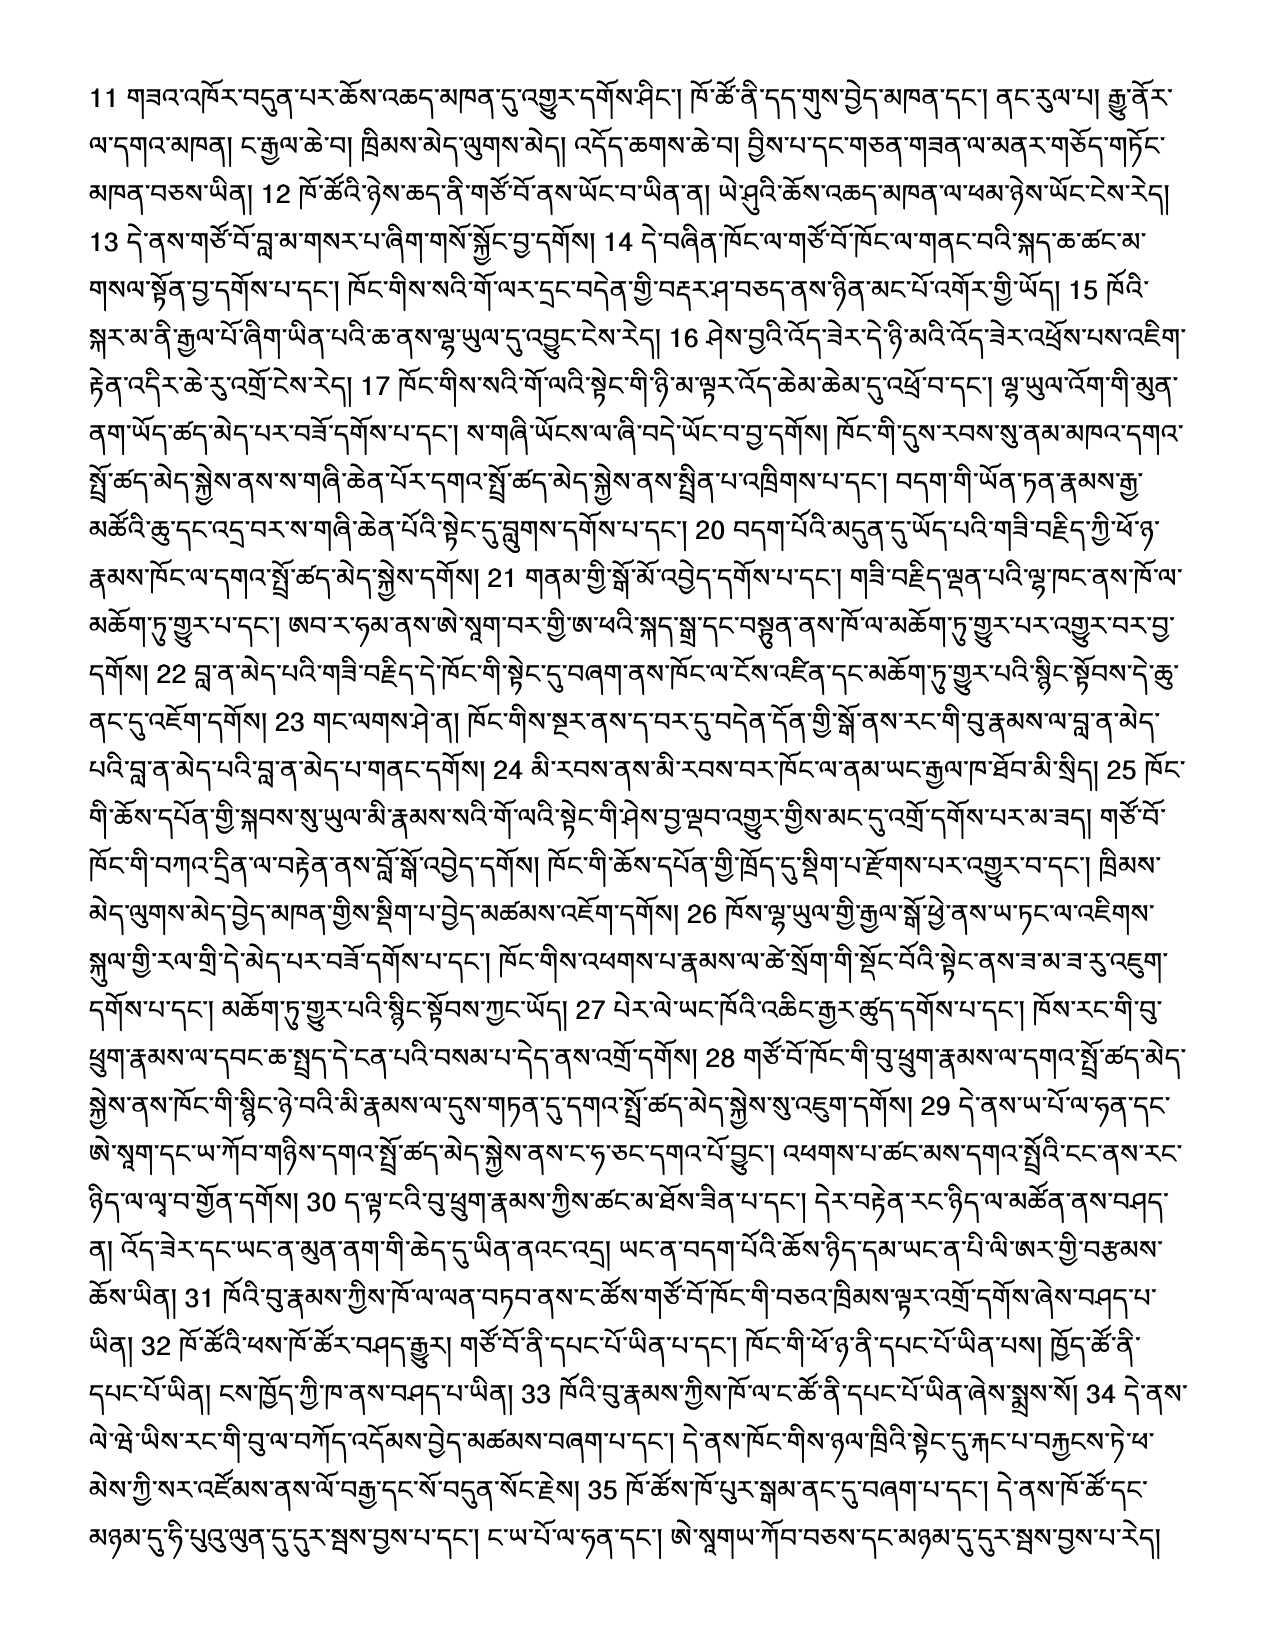 11 གཟའ་འཁོར་བདུན་པར་ཆོས་འཆད་མཁན་དུ་འགྱུར་དགོས་ཤིང་། ཁོ་ཚོ་ནི་དད་གུས་བྱེད་མཁན་དང་། ནང་རུལ་པ། རྒྱུ་ནོར་
ལ་དགའ་མཁན། ང་རྒྱལ་ཆེ་བ། ཁྲིམས་མེད་ལུགས་མེད། འདོད་ཆགས་ཆེ་བ། བྱིས་པ་དང་གཅན་གཟན་ལ་མནར་གཅོད་གཏོང་
མཁན་བཅས་ཡིན། 12 ཁོ་ཚོའི་ཉེས་ཆད་ནི་གཙོ་བོ་ནས་ཡོང་བ་ཡིན་ན། ཡེ་ཤུའི་ཆོས་འཆད་མཁན་ལ་ཕམ་ཉེས་ཡོང་ངེས་རེད།
13 དེ་ནས་གཙོ་བོ་བླ་མ་གསར་པ་ཞིག་གསོ་སྐྱོང་བྱ་དགོས། 14 དེ་བཞིན་ཁོང་ལ་གཙོ་བོ་ཁོང་ལ་གནང་བའི་སྐད་ཆ་ཚང་མ་
གསལ་སྟོན་བྱ་དགོས་པ་དང་། ཁོང་གིས་སའི་གོ་ལར་དྲང་བདེན་གྱི་བརྡར་ཤ་བཅད་ནས་ཉིན་མང་པོ་འགོར་གྱི་ཡོད། 15 ཁོའི་
སྐར་མ་ནི་རྒྱལ་པོ་ཞིག་ཡིན་པའི་ཆ་ནས་ལྷ་ཡུལ་དུ་འབྱུང་ངེས་རེད། 16 ཤེས་བྱའི་འོད་ཟེར་དེ་ཉི་མའི་འོད་ཟེར་འཕྲོས་པས་འཇིག་
རྟེན་འདིར་ཆེ་རུ་འགྲོ་ངེས་རེད། 17 ཁོང་གིས་སའི་གོ་ལའི་སྟེང་གི་ཉི་མ་ལྟར་འོད་ཆེམ་ཆེམ་དུ་འཕྲོ་བ་དང་། ལྷ་ཡུལ་འོག་གི་མུན་
ནག་ཡོད་ཚད་མེད་པར་བཟོ་དགོས་པ་དང་། ས་གཞི་ཡོངས་ལ་ཞི་བདེ་ཡོང་བ་བྱ་དགོས། ཁོང་གི་དུས་རབས་སུ་ནམ་མཁའ་དགའ་
སྤྲོ་ཚད་མེད་སྐྱེས་ནས་ས་གཞི་ཆེན་པོར་དགའ་སྤྲོ་ཚད་མེད་སྐྱེས་ནས་སྤྲིན་པ་འཁྲིགས་པ་དང་། བདག་གི་ཡོན་ཏན་རྣམས་རྒྱ་
མཚོའི་ཆུ་དང་འདྲ་བར་ས་གཞི་ཆེན་པོའི་སྟེང་དུ་བླུགས་དགོས་པ་དང་། 20 བདག་པོའི་མདུན་དུ་ཡོད་པའི་གཟི་བརྗིད་ཀྱི་ཕོ་ཉ་
རྣམས་ཁོང་ལ་དགའ་སྤྲོ་ཚད་མེད་སྐྱེས་དགོས། 21 གནམ་གྱི་སྒོ་མོ་འབྱེད་དགོས་པ་དང་། གཟི་བརྗིད་ལྡན་པའི་ལྷ་ཁང་ནས་ཁོ་ལ་
མཆོག་ཏུ་གྱུར་པ་དང་། ཨབ་ར་ཧམ་ནས་ཨེ་སཱག་བར་གྱི་ཨ་ཕའི་སྐད་སྒྲ་དང་བསྟུན་ནས་ཁོ་ལ་མཆོག་ཏུ་གྱུར་པར་འགྱུར་བར་བྱ་
དགོས། 22 བླ་ན་མེད་པའི་གཟི་བརྗིད་དེ་ཁོང་གི་སྟེང་དུ་བཞག་ནས་ཁོང་ལ་ངོས་འཛིན་དང་མཆོག་ཏུ་གྱུར་པའི་སྙིང་སྟོབས་དེ་ཆུ་
ནང་དུ་འཇོག་དགོས། 23 གང་ལགས་ཤེ་ན། ཁོང་གིས་སྔར་ནས་ད་བར་དུ་བདེན་དོན་གྱི་སྒོ་ནས་རང་གི་བུ་རྣམས་ལ་བླ་ན་མེད་
པའི་བླ་ན་མེད་པའི་བླ་ན་མེད་པ་གནང་དགོས། 24 མི་རབས་ནས་མི་རབས་བར་ཁོང་ལ་ནམ་ཡང་རྒྱལ་ཁ་ཐོབ་མི་སྲིད། 25 ཁོང་
གི་ཆོས་དཔོན་གྱི་སྐབས་སུ་ཡུལ་མི་རྣམས་སའི་གོ་ལའི་སྟེང་གི་ཤེས་བྱ་ལྡབ་འགྱུར་གྱིས་མང་དུ་འགྲོ་དགོས་པར་མ་ཟད། གཙོ་བོ་
ཁོང་གི་བཀའ་དྲིན་ལ་བརྟེན་ནས་བློ་སྒོ་འབྱེད་དགོས། ཁོང་གི་ཆོས་དཔོན་གྱི་ཁྲོད་དུ་སྡིག་པ་རྫོགས་པར་འགྱུར་བ་དང་། ཁྲིམས་
མེད་ལུགས་མེད་བྱེད་མཁན་གྱིས་སྡིག་པ་བྱེད་མཚམས་འཇོག་དགོས། 26 ཁོས་ལྷ་ཡུལ་གྱི་རྒྱལ་སྒོ་ཕྱེ་ནས་ཡ་ཏང་ལ་འཇིགས་
སྐུལ་གྱི་རལ་གྲི་དེ་མེད་པར་བཟོ་དགོས་པ་དང་། ཁོང་གིས་འཕགས་པ་རྣམས་ལ་ཚེ་སྲོག་གི་སྡོང་བོའི་སྟེང་ནས་ཟ་མ་ཟ་རུ་འཇུག་
དགོས་པ་དང་། མཆོག་ཏུ་གྱུར་པའི་སྙིང་སྟོབས་ཀྱང་ཡོད། 27 པེར་ལེ་ཡང་ཁོའི་འཆིང་རྒྱར་ཚུད་དགོས་པ་དང་། ཁོས་རང་གི་བུ་
ཕྲུག་རྣམས་ལ་དབང་ཆ་སྤྲད་དེ་ངན་པའི་བསམ་པ་དེད་ནས་འགྲོ་དགོས། 28 གཙོ་བོ་ཁོང་གི་བུ་ཕྲུག་རྣམས་ལ་དགའ་སྤྲོ་ཚད་མེད་
སྐྱེས་ནས་ཁོང་གི་སྙིང་ཉེ་བའི་མི་རྣམས་ལ་དུས་གཏན་དུ་དགའ་སྤྲོ་ཚད་མེད་སྐྱེས་སུ་འཇུག་དགོས། 29 དེ་ནས་ཡ་པོ་ལ་ཧན་དང་
ཨེ་སཱག་དང་ཡ་ཀོབ་གཉིས་དགའ་སྤྲོ་ཚད་མེད་སྐྱེས་ནས་ང་ཧ་ཅང་དགའ་པོ་བྱུང་། འཕགས་པ་ཚང་མས་དགའ་སྤྲོའི་ངང་ནས་རང་
ཉིད་ལ་ལྭ་བ་གྱོན་དགོས། 30 ད་ལྟ་ངའི་བུ་ཕྲུག་རྣམས་ཀྱིས་ཚང་མ་ཐོས་ཟིན་པ་དང་། དེར་བརྟེན་རང་ཉིད་ལ་མཚོན་ནས་བཤད་
ན། འོད་ཟེར་དང་ཡང་ན་མུན་ནག་གི་ཆེད་དུ་ཡིན་ནའང་འདྲ། ཡང་ན་བདག་པོའི་ཆོས་ཉིད་དམ་ཡང་ན་པི་ལི་ཨར་གྱི་བརྩམས་
ཆོས་ཡིན། 31 ཁོའི་བུ་རྣམས་ཀྱིས་ཁོ་ལ་ལན་བཏབ་ནས་ང་ཚོས་གཙོ་བོ་ཁོང་གི་བཅའ་ཁྲིམས་ལྟར་འགྲོ་དགོས་ཞེས་བཤད་པ་
ཡིན། 32 ཁོ་ཚོའི་ཕས་ཁོ་ཚོར་བཤད་རྒྱུར། གཙོ་བོ་ནི་དཔང་པོ་ཡིན་པ་དང་། ཁོང་གི་ཕོ་ཉ་ནི་དཔང་པོ་ཡིན་པས། ཁྱོད་ཚོ་ནི་
དཔང་པོ་ཡིན། ངས་ཁྱོད་ཀྱི་ཁ་ནས་བཤད་པ་ཡིན། 33 ཁོའི་བུ་རྣམས་ཀྱིས་ཁོ་ལ་ང་ཚོ་ནི་དཔང་པོ་ཡིན་ཞེས་སྨྲས་སོ། 34 དེ་ནས་
ལེ་ཝེ་ཡིས་རང་གི་བུ་ལ་བཀོད་འདོམས་བྱེད་མཚམས་བཞག་པ་དང་། དེ་ནས་ཁོང་གིས་ཉལ་ཁྲིའི་སྟེང་དུ་རྐང་པ་བརྐྱངས་ཏེ་ཕ་
མེས་ཀྱི་སར་འཛོམས་ནས་ལོ་བརྒྱ་དང་སོ་བདུན་སོང་རྗེས། 35 ཁོ་ཚོས་ཁོ་པུར་སྒམ་ནང་དུ་བཞག་པ་དང་། དེ་ནས་ཁོ་ཚོ་དང་
མཉམ་དུ་ཧི་པུའུ་ལུན་དུ་དུར་སྦས་བྱས་པ་དང་། ང་ཡ་པོ་ལ་ཧན་དང་། ཨེ་སཱགཡ་ཀོབ་བཅས་དང་མཉམ་དུ་དུར་སྦས་བྱས་པ་རེད།